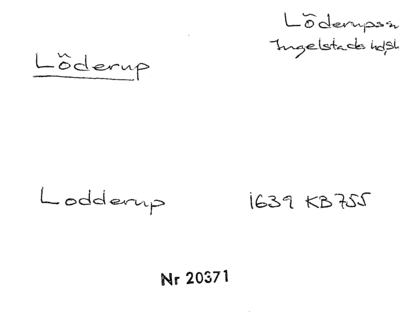 Löderups sn
Ingelstads hd, Sk
Löderup
Lodderup 1639 KB 755
Nr 20371